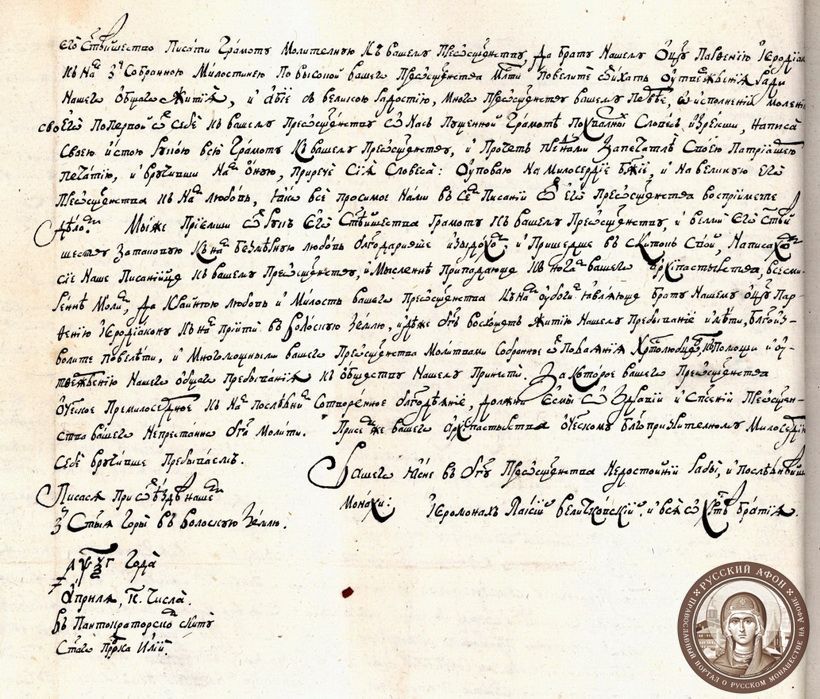 Его Стѣйшество Писати Грамоту Молителную Къ вашему Преосщенству, Да брату Нашему Оцу Парѳенію Іеродіак
къ На съ Собранною Милостинею По высокой вашего Преосщенства Млти повелите Ѿихать Оутвержденїѧ ради
Нашего Общаго Житїѧ, и абїе съ великою радостїю, Много Преосщенству вашему
своего По Первой Ѿ Себе къ вашему Преосщенству Ѿ Насъ Пущенной Грамотѣ Похвалнїи Словеса Изрекши, Написа
Своею Истою рукою всю Грамоту Къ вашему Преосщенству, и Прочетъ Пред Нами Запечатлѣ Своею Патрїаршею
Печатїю, и вручивши На оную, Прирече Сїѧ Словеса: Оуповаю На Милосердїе Бжїе, и На великую его
Преосщенства къ На Любовь, Яко все просимое Нами въ Се Писанїи Ѿ Его Преосщенства воспрїимете
Дѣло. Мы же Прїемши Ѿ рукъ Его Стѣйшества Грамоту къ вашему Преосщенству, и велїй Его Стѣй
шеству За таковую Къ на Безмѣрную любовь благодаривше Изыдохо и Пришедше въ скитокъ Свой, Написахо
сїе Наше Писанїйце къ вашему Преосщенству, и Мысленнѣ Припадающе къ Нога вашего Архипастырства, всесми
реннѣ Моли, Да Крайнюю Любовь и Милость вашего Преосщенства Къ На оубоги Являюще брату Нашему Оцу Пар
ѳенїю Іеродїакону къ На прїити въ Волоскую Землю, идѣже Бгъ восхощетъ Житїю Нашему Пребыванїе имѣти, Благоиз
волите повелѣти, и Многомощными вашего Преосщенства Молитвами Собранное Ѿ Подаянїѧ Хртолюбцо, къ Помощи и оу
твержденїю Нашего общаго Пребыванїѧ къ Обществу Нашему Принести. За Которое вашего Преосщенства
Оческое Премилосердное къ На Послѣдни Сотворенное благодѣянїе, должни Есмы Ѿ Здравїи и Спсенїи Преосщен
ства вашего Непрестанно Бга Молити. При се же вашего Архипастырства оческому Благопризрителному Милосердїю
Себе вручивше Пребываемъ.
Вашего Яже въ Бгу Преосщенства Недостойнїи Раби, и Послѣднѣйши
Монахи: Іеромонахъ Паисїй Величковскїй. и всѧ о Хртѣ братїѧ.
Писасѧ При Ѿездѣ Наше
Стыѧ Горы въ Волоскую Землю.
҂аѱѯг Года
Априлѧ, к. Числа.
въ Пантократорско скиту
Стаго Пррка Илїи.
РУССКИЙ АФОН
ПРАВОСЛАВНЫЙ ПОРТАЛ О РУССКОМ МОНАШЕСТВЕ НА АФОНЕ